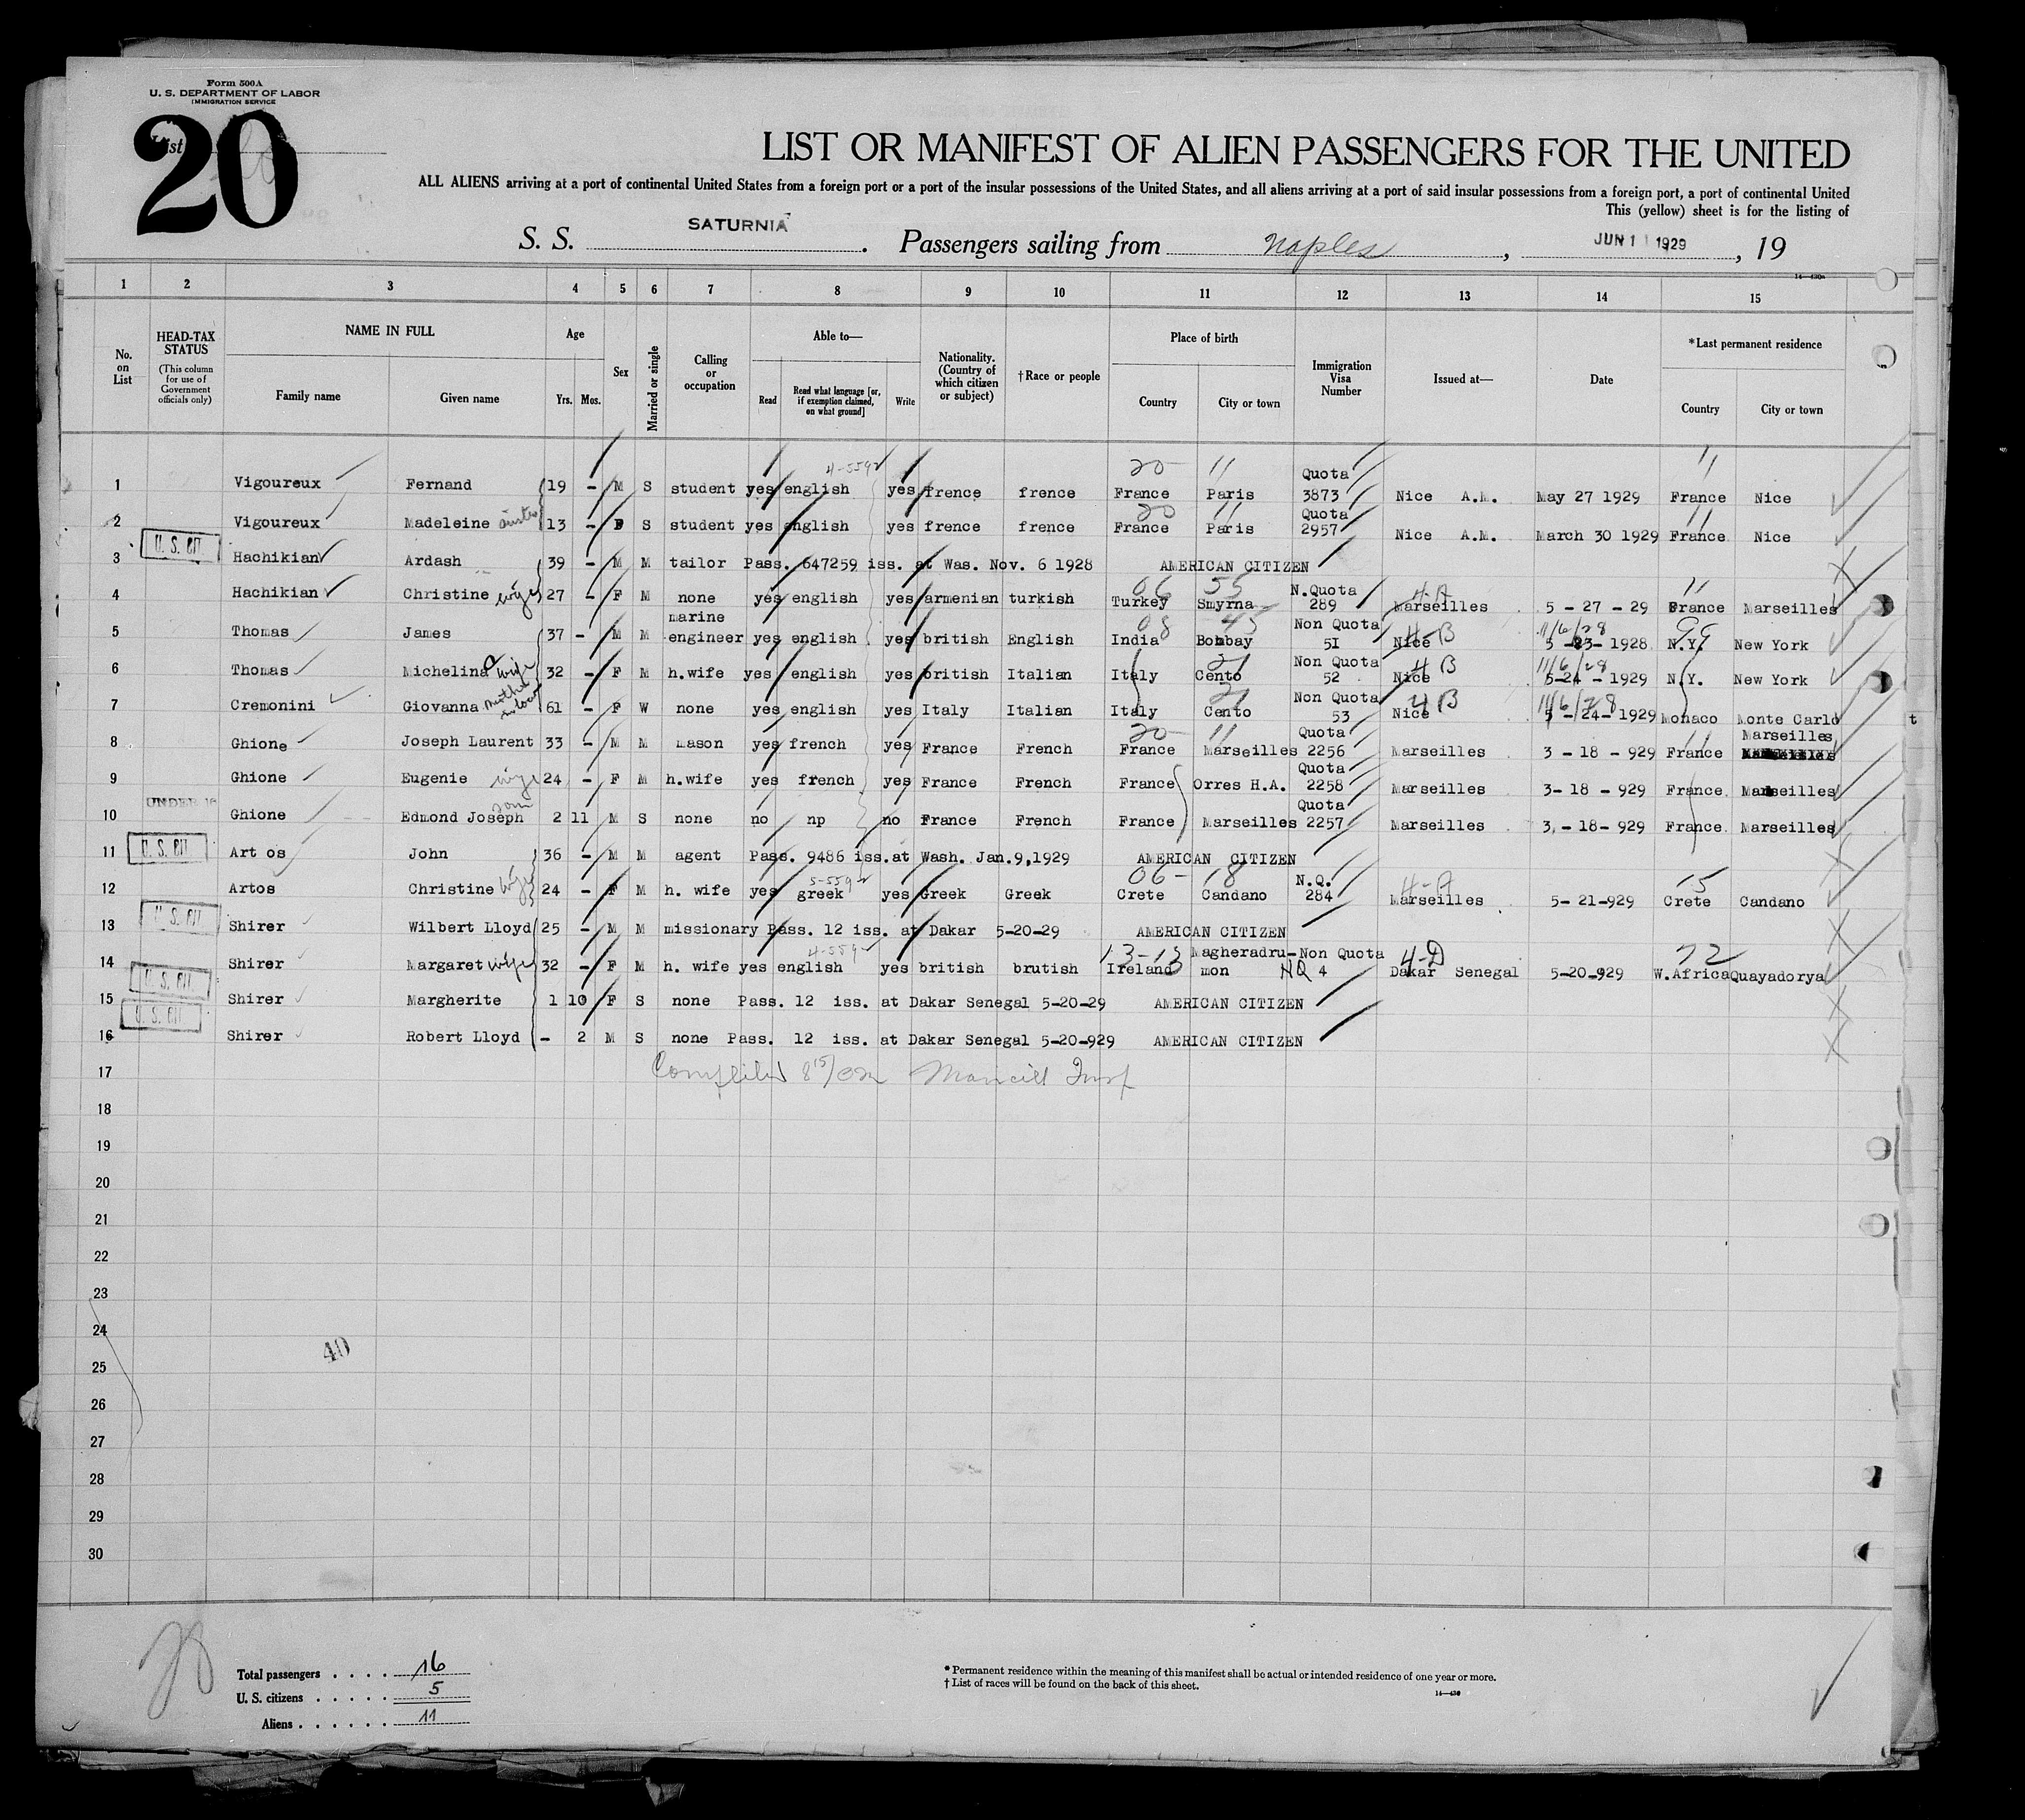 Form 500A
U. S. DEPARTMENT OF LABOR
IMMIGRATION SERVICE
List
20
LIST OR MANIFEST OF ALIEN PASSENGERS FOR THE UNITED
ALL ALIENS arriving at a port of continental United States from a foreign port or a port of the insular possessions of the United States, and all aliens arriving at a port of said insular possessions from a foreign port, a port of continental United
This (yellow) sheet is for the listing of
S. S. SATURNIA. Passengers sailing from Naples, JUN 1 1929, 19
14—430
1 2 3 4 5 6 7 8 9 10 11 12 13 14 15
No. on List
HEAD-TAX STATUS (This column for use of Government officials only)
NAME IN FULL
Family name Given name
Age
Yrs. Mos.
Sex
Married or single
Calling or occupation
Able to—
Read Read what language [or, if exemption claimed, on what ground] Write
Nationality. (Country of which citizen or subject)
†Race or people
Place of birth
Country City or town
Immigration Visa Number
Issued at—
Date
*Last permanent residence
Country City or town
4-559 20 11 11
1 Vigoureux Fernand 19 – M S student yes english yes frence frence France Paris Quota 3873 Nice A.M. May 27 1929 France Nice
20 11 11
2 Vigoureux Madeleine sister 13 – F S student yes english yes frence frence France Paris Quota 2957 Nice A.M. March 30 1929 France Nice
U. S. CIT.
3 Hachikian Ardash 39 – M M tailor Pass. 647259 iss. at Was. Nov. 6 1928 AMERICAN CITIZEN
06 55 4-A 11
4 Hachikian Christine wife 27 – F M none yes english yes armenian turkish Turkey Smyrna N.Quota 289 Marseilles 5 – 27 – 29 France Marseilles
08 45 4-B 11/6/28 99
5 Thomas James 37 – M M marine engineer yes english yes british English India Bombay Non Quota 51 Nice 5 –23– 1928 N.Y. New York
21 4 B 11/6/28
6 Thomas Michelina wife 32 – F M h.wife yes english yes british Italian Italy Cento Non Quota 52 Nice 5–24 – 1929 N.Y. New York
21 4 B 11/6/28
7 Cremonini Giovanna mother in law 61 – F W none yes english yes Italy Italian Italy Cento Non Quota 53 Nice 5 –24– 1929 Monaco Monte Carlo
20 11 11
8 Ghione Joseph Laurent 33 – M M mason yes french yes France French France Marseilles Quota 2256 Marseilles 3 – 18 – 929 France Marseilles
9 Ghione Eugenie wife 24 – F M h.wife yes french yes France French France Orres H.A. Quota 2258 Marseilles 3– 18 – 929 France Marseilles
UNDER 16
10 Ghione Edmond Joseph son 2 11 M S none no np no France French France Marseilles Quota 2257 Marseilles 3,– 18– 929 France Marseilles
U. S. CIT.
11 Art os John 36 – M M agent Pass. 9486 iss.at Wash. Jan.9,1929 AMERICAN CITIZEN
5-559 06- 18 4-A 15
12 Artos Christine wife 24 – F M h. wife yes greek yes Greek Greek Crete Candano N.Q. 284 Marseilles 5– 21–929 Crete Candano
U. S. CIT.
13 Shirer Wilbert Lloyd 25 – M M missionary Pass. 12 iss. at Dakar 5-20-29 AMERICAN CITIZEN
4-559 13-13 4-D 72
14 Shirer Margaret wife 32 – F M h. wife yes english yes british brutish Ireland Magheradru-mon Non Quota NQ 4 Dakar Senegal 5-20-929 W.Africa Quayadorya
U. S. CIT.
15 Shirer Margherite 1 10 F S none Pass. 12 iss. at Dakar Senegal 5-20-29 AMERICAN CITIZEN
U. S. CIT.
16 Shirer Robert Lloyd – 2 M S none Pass. 12 iss. at Dakar Senegal 5-20-929 AMERICAN CITIZEN
17
18
19
20
21
22
23
24
40
25
26
27
28
29
30
Total passengers . . . . 16
U. S. citizens . . . . . 5
Aliens . . . . . . 11
* Permanent residence within the meaning of this manifest shall be actual or intended residence of one year or more.
† List of races will be found on the back of this sheet.
14—430